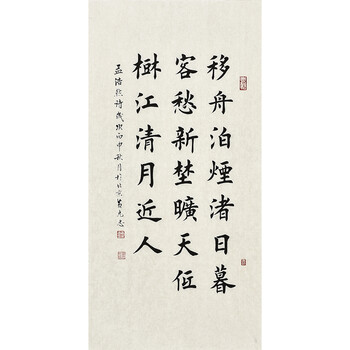 移舟泊煙渚日暮
客愁新埜曠天低
樹江清月近人
孟浩然詩歲次丙申秋月於北京